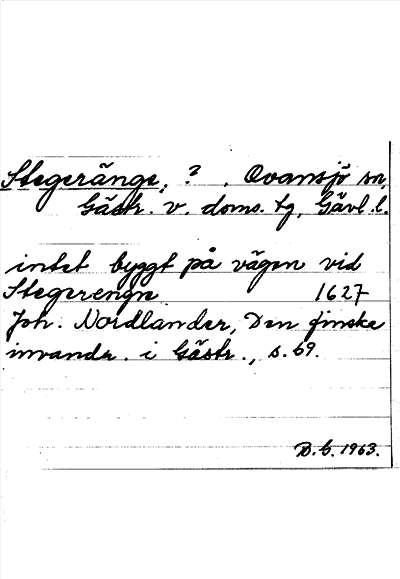 Stegeränge, ? . Ovansjö sn,
Gästr. v. doms. tg, Gävl. l.
intet byggt på vägen vid
Stegerengn 1627
Joh. Nordlander, Den finske
invandr. i Gästr., s. 69.
B.G. 1963.